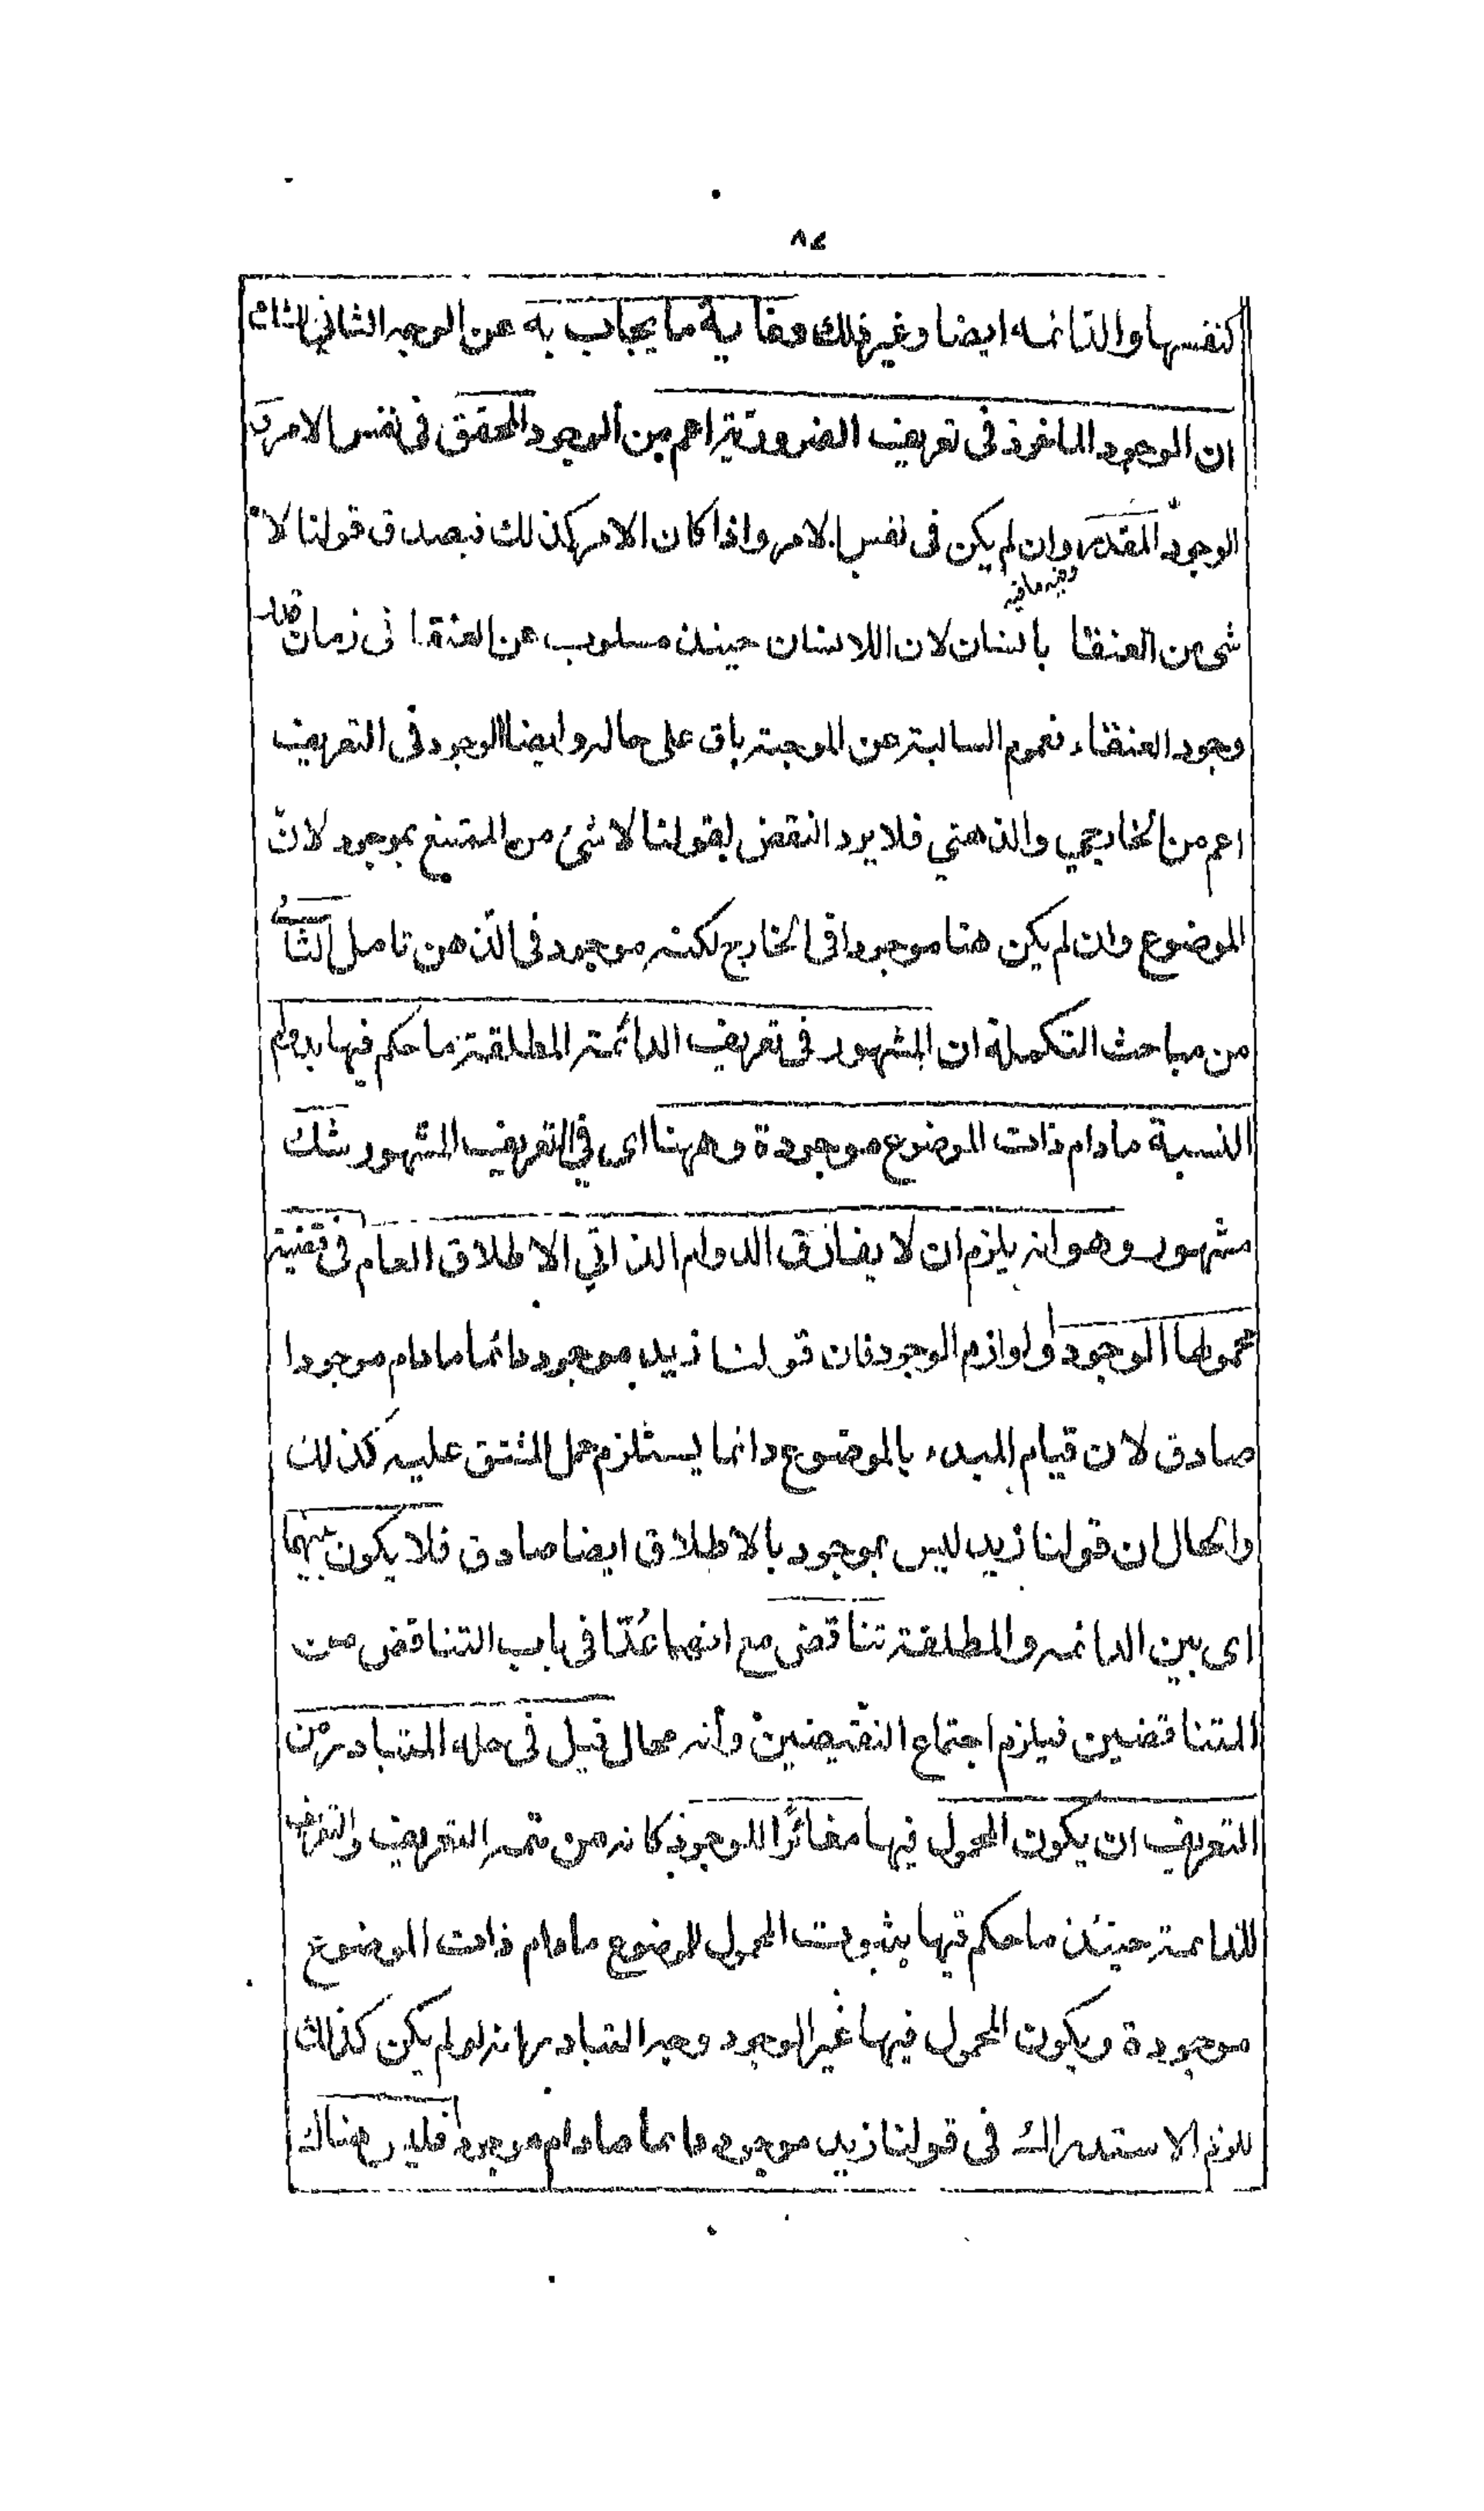 ٨٤
كنفسها والدائمه ايضا وغير ذلك وغاية ما يجاب به عن الوجه الثانى
ان الوجود الماخوذ فى تعريف الضرورية اعم من الوجود المحقق فى نفس الامر
الوجود المقدر وان لم يكن فى نفس الامر واذا كان الامر كذلك فيصدق قولنا لا
وفيه ما فيه
شى من العنقا بانسان لان اللانسان حينئذ مسلوب عن العنقا فى زمان
وجود العنقاء فعموم السالبة عن الموجبة باق على حاله وايضا الوجود فى التعريف
اعم من الخارجي والذهني فلا يرد النقض بقولنا لا شئ من الممتنع بموجود لانّ
الموضوع وان لم يكن هنا موجودا فى الخارج لكنه موجود فى الذهن تامل الثا
من مباحث التكملة ان المشهور فى تعريف الدائمة المطلقة ما حكم فيها بدوام
النسبة ما دام ذات الموضوع موجودة وههنا اى فى التعريف المشهور شك
مشهور وهو انه يلزم ان لا يفارق الدوام الذاتي الاطلاق العام فى قضية
محمولها الوجود او لوازم الوجود فان قولنا زيد موجود دائما مادام موجودا
صادق لان قيام المبدء بالموضوع دائما يستلزم حمل المشتق عليه كذلك
والحال ان قولنا زيد ليس بموجود بالاطلاق ايضا صادق فلا يكون بينهما
اى بين الدائمه والمطلقة تناقض مع انهما عُدّا فى باب التناقض من
المتناقضين فيلزم اجتماع النقيضين وأنه محال قيل فى حله المتبادر من
التعريف ان يكون المحمول فيها مغائرًا للوجود كانه من تتمه التعريف والتعريف
للدائمة حينئذ ما حكم فيها بثبوت المحمول للموضوع مادام ذات الموضوع
موجودة ويكون المحمول فيها غير الوجود وجه التبادر انه لو لم يكن كذلك
للزم الاستدراك فى قولنا زيد موجود دائما مادام موجودا فليس هناك